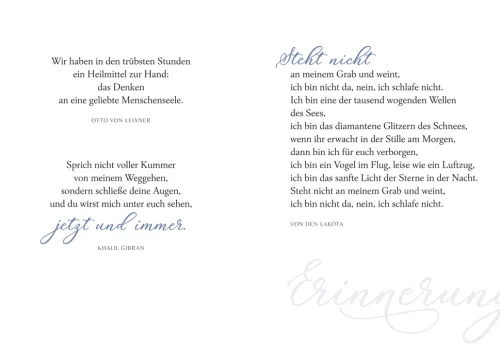 Wir haben in den trübsten Stunden
ein Heilmittel zur Hand:
das Denken
an eine geliebte Menschenseele.
OTTO VON LEIXNER
Sprich nicht voller Kummer
von meinem Weggehen,
sondern schließe deine Augen,
und du wirst mich unter euch sehen,
jetzt und immer.
KHALIL GIBRAN
Steht nicht
an meinem Grab und weint,
ich bin nicht da, nein, ich schlafe nicht.
Ich bin eine der tausend wogenden Wellen
des Sees,
ich bin das diamantene Glitzern des Schnees,
wenn ihr erwacht in der Stille am Morgen,
dann bin ich für euch verborgen,
ich bin ein Vogel im Flug, leise wie ein Luftzug,
ich bin das sanfte Licht der Sterne in der Nacht.
Steht nicht an meinem Grab und weint,
ich bin nicht da, nein, ich schlafe nicht.
VON DEN LAKOTA
Erinnerung